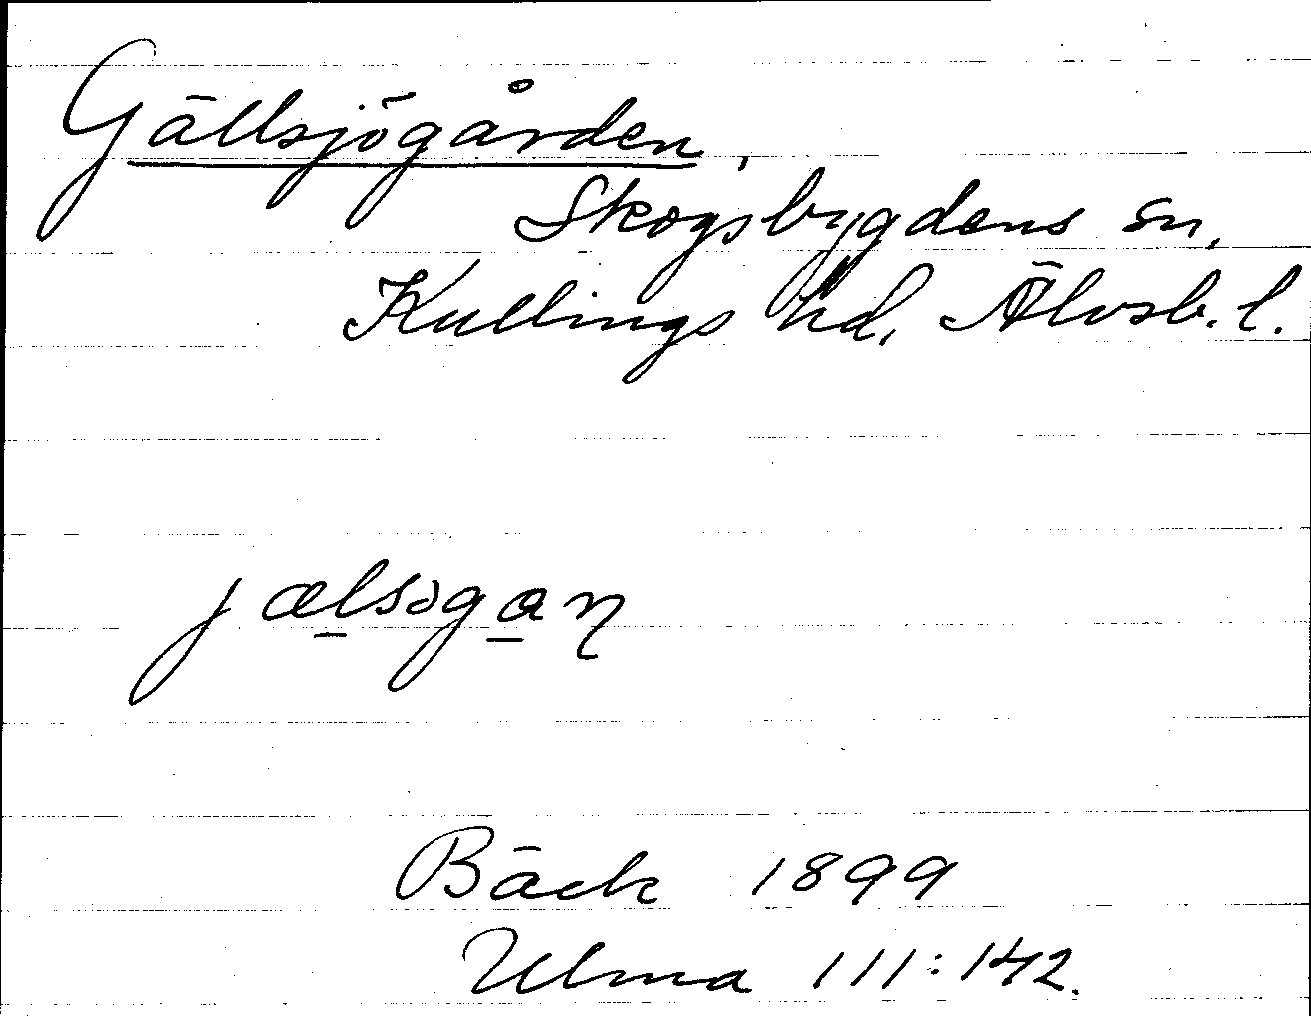 Gällsjögården,
Skogsbygdens sn,
Kullings hd, Älvsb. l.
jælsɔgan
Bäck 1899
Ulma 111:142.